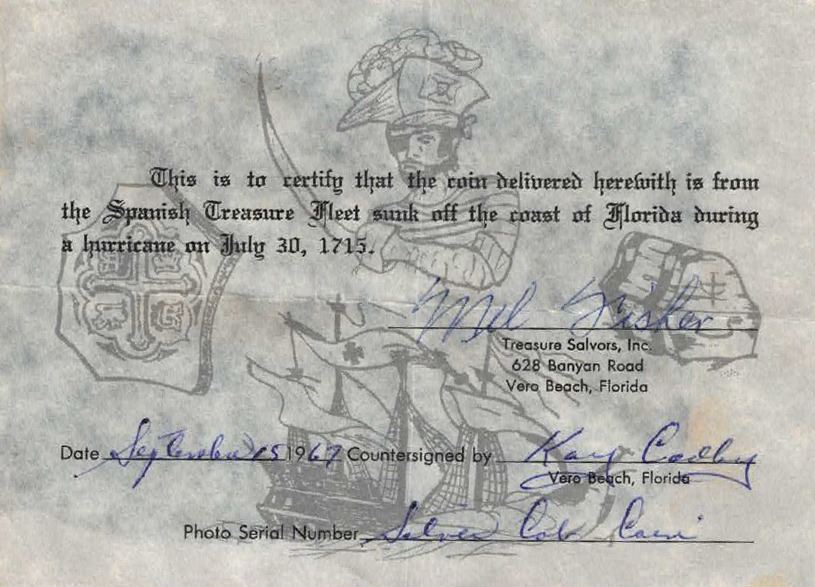 This is to certify that the coin delivered herewith is from
the Spanish Treasure Fleet sunk off the coast of Florida during
a hurricane on July 30, 1715.
Mel Fisher
Treasure Salvors, Inc.
628 Banyan Road
Vero Beach, Florida
Date September 15 1967 Countersigned by Kay
Vero Beach, Florida
Photo Serial Number Silver Cob Coin